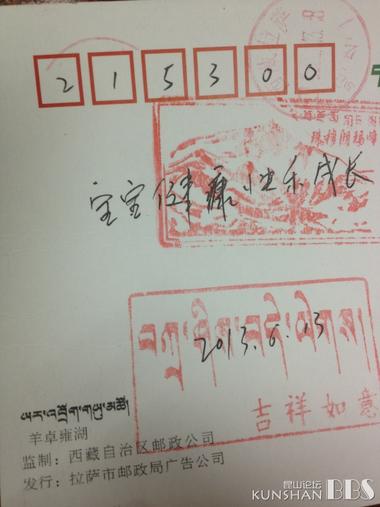 215300
珠穆朗玛峰
宝宝健康快乐成长
བཀྲ་ཤིས་བདེ་ལེགས།
2013.6.13
吉祥如意
ཡར་འབྲོག་གཡུ་མཚོ།
羊卓雍湖
监制：西藏自治区邮政公司
发行：拉萨市邮政局广告公司
昆山论坛
KUNSHAN BBS